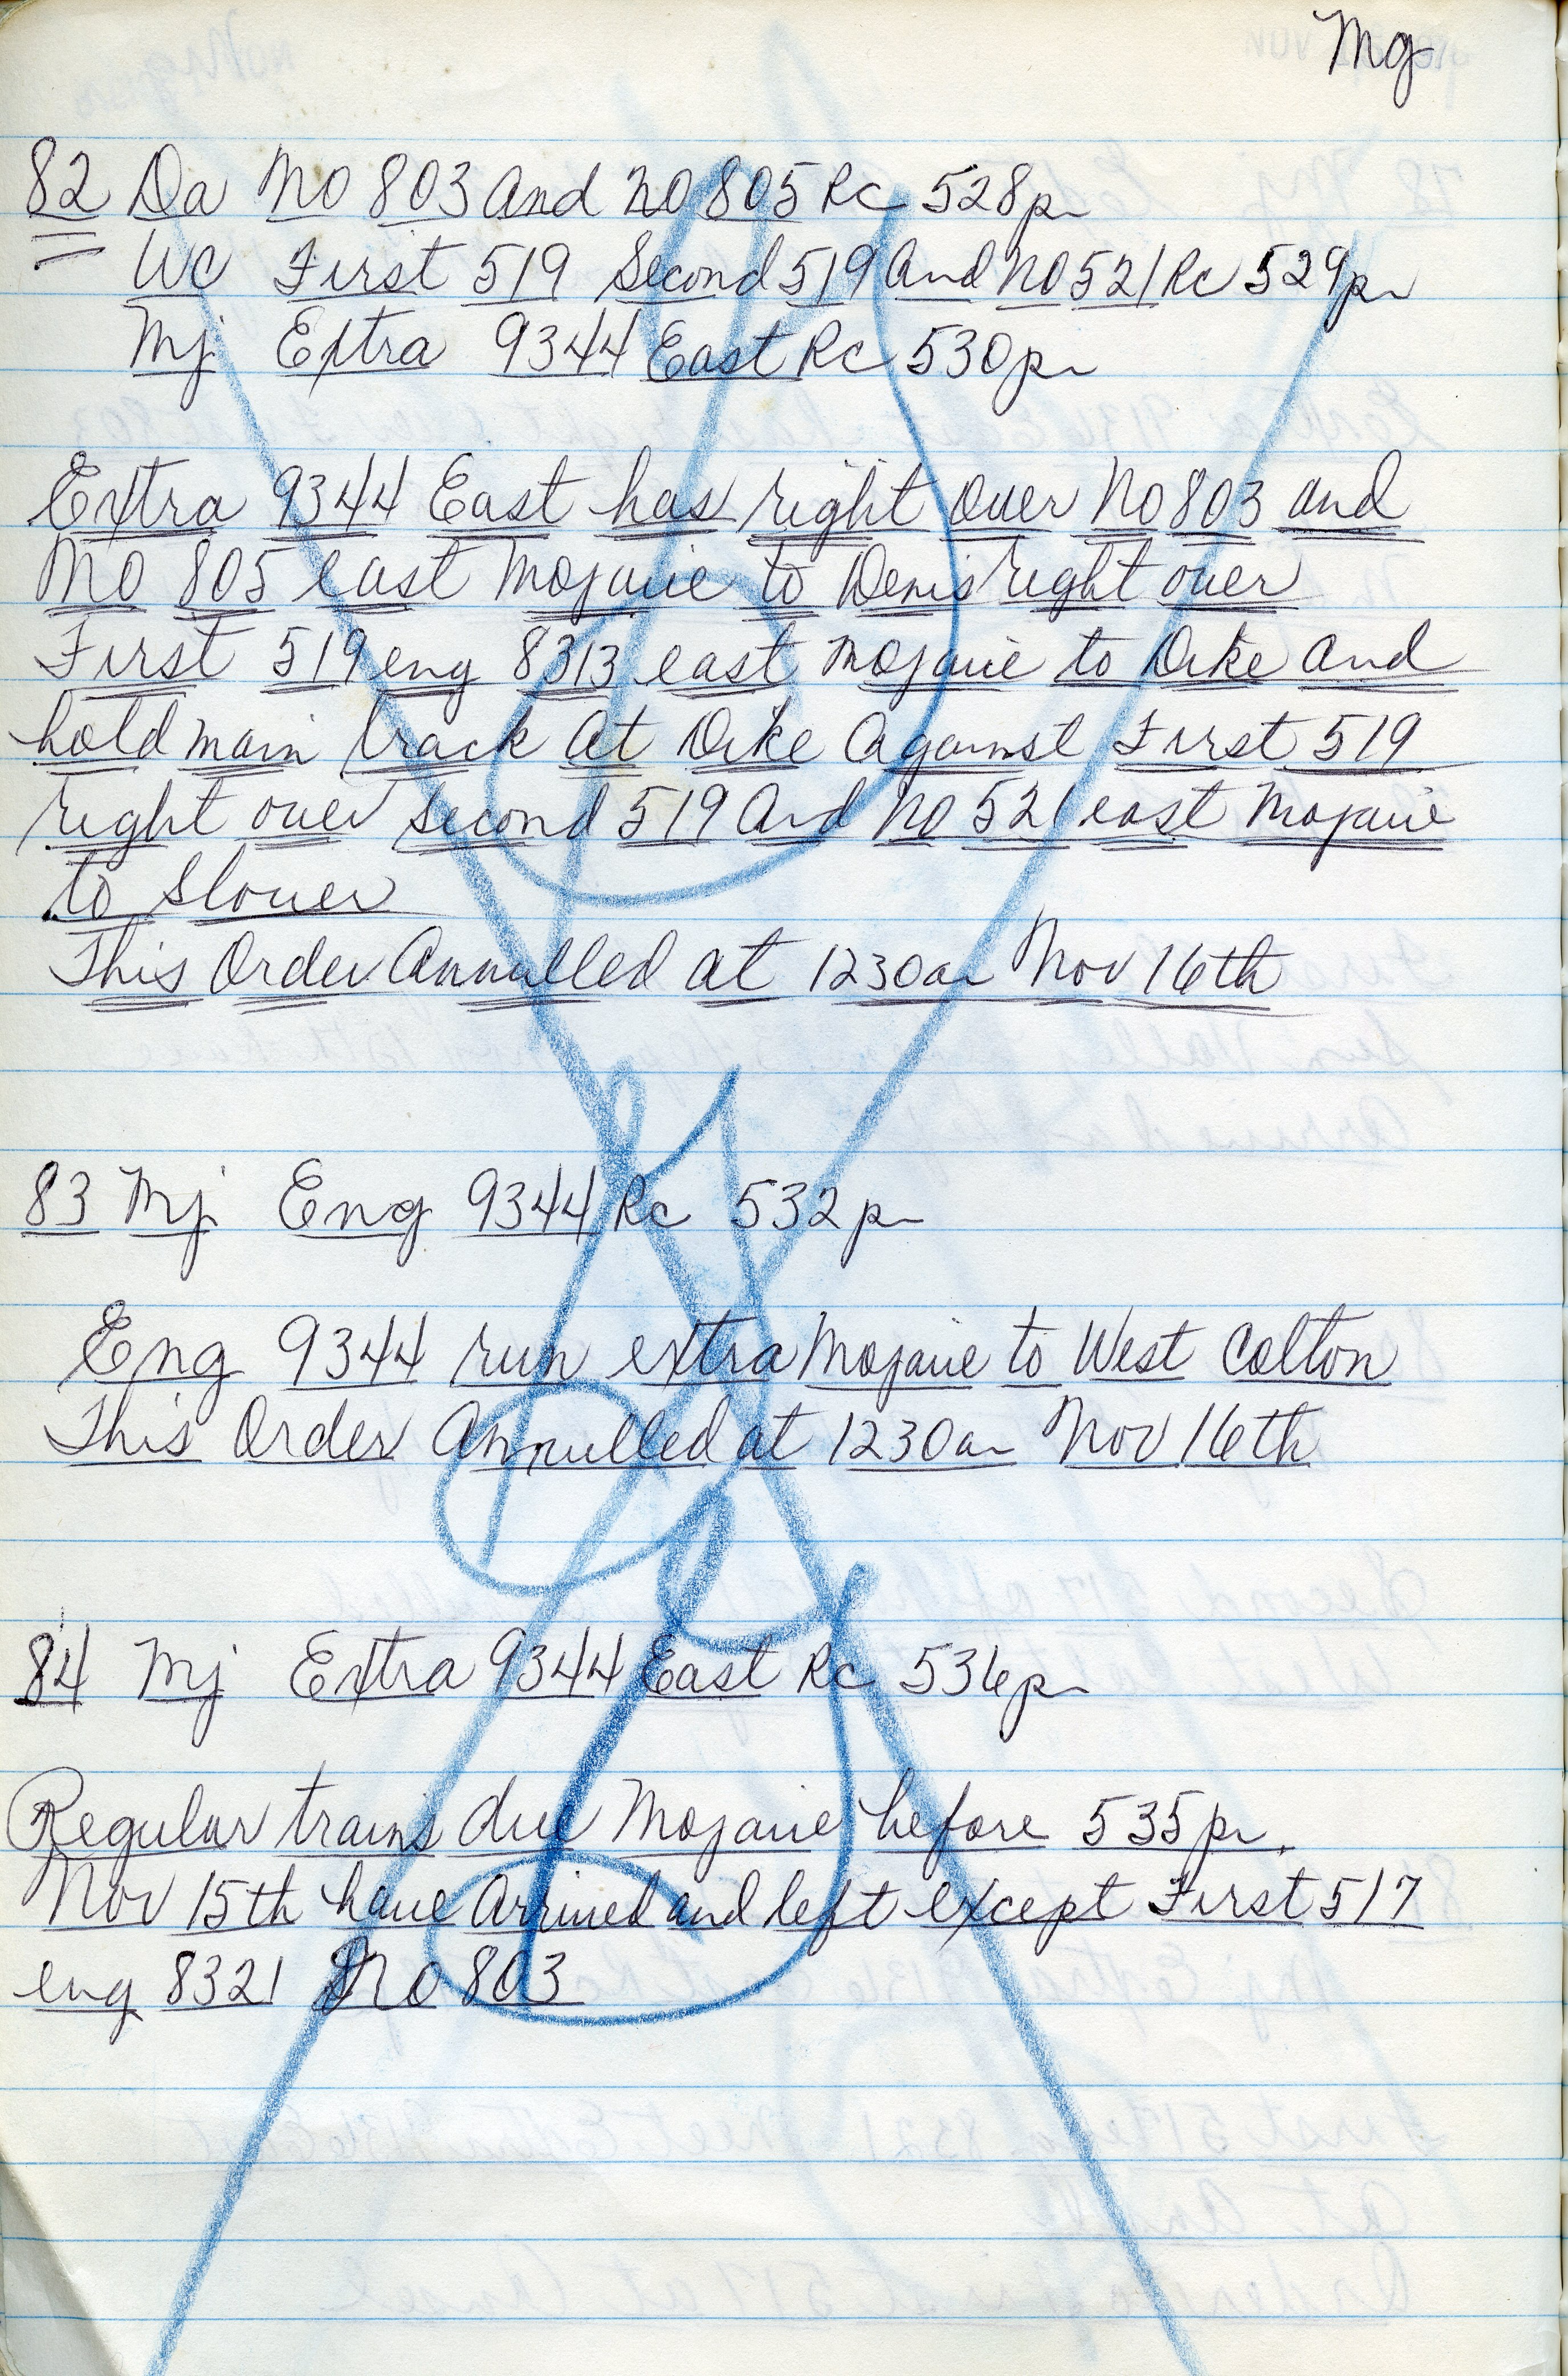 Mg
82 Da No 803 and No 805 Rc 528p
WC First 519 Second 519 And No 521 Rc 529p
Mj Extra 9344 East Rc 530p
Extra 9344 East has right over No 803 and
No 805 east Mojave to Denis right over
First 519 eng 8313 east Mojave to Dike and
hold main track at Dike Against First 519
right over second 519 And No 521 east Mojave
to Slover
This Order Annulled at 1230a Nov 16th
83 Mj Eng 9344 Rc 532p
Eng 9344 run extra Mojave to West Colton
This Order Annulled at 1230a Nov 16th
84 Mj Extra 9344 East Rc 536p
Regular trains due Mojave before 535p
Nov 15th have Arrived and left except First 517
eng 8321 No 803